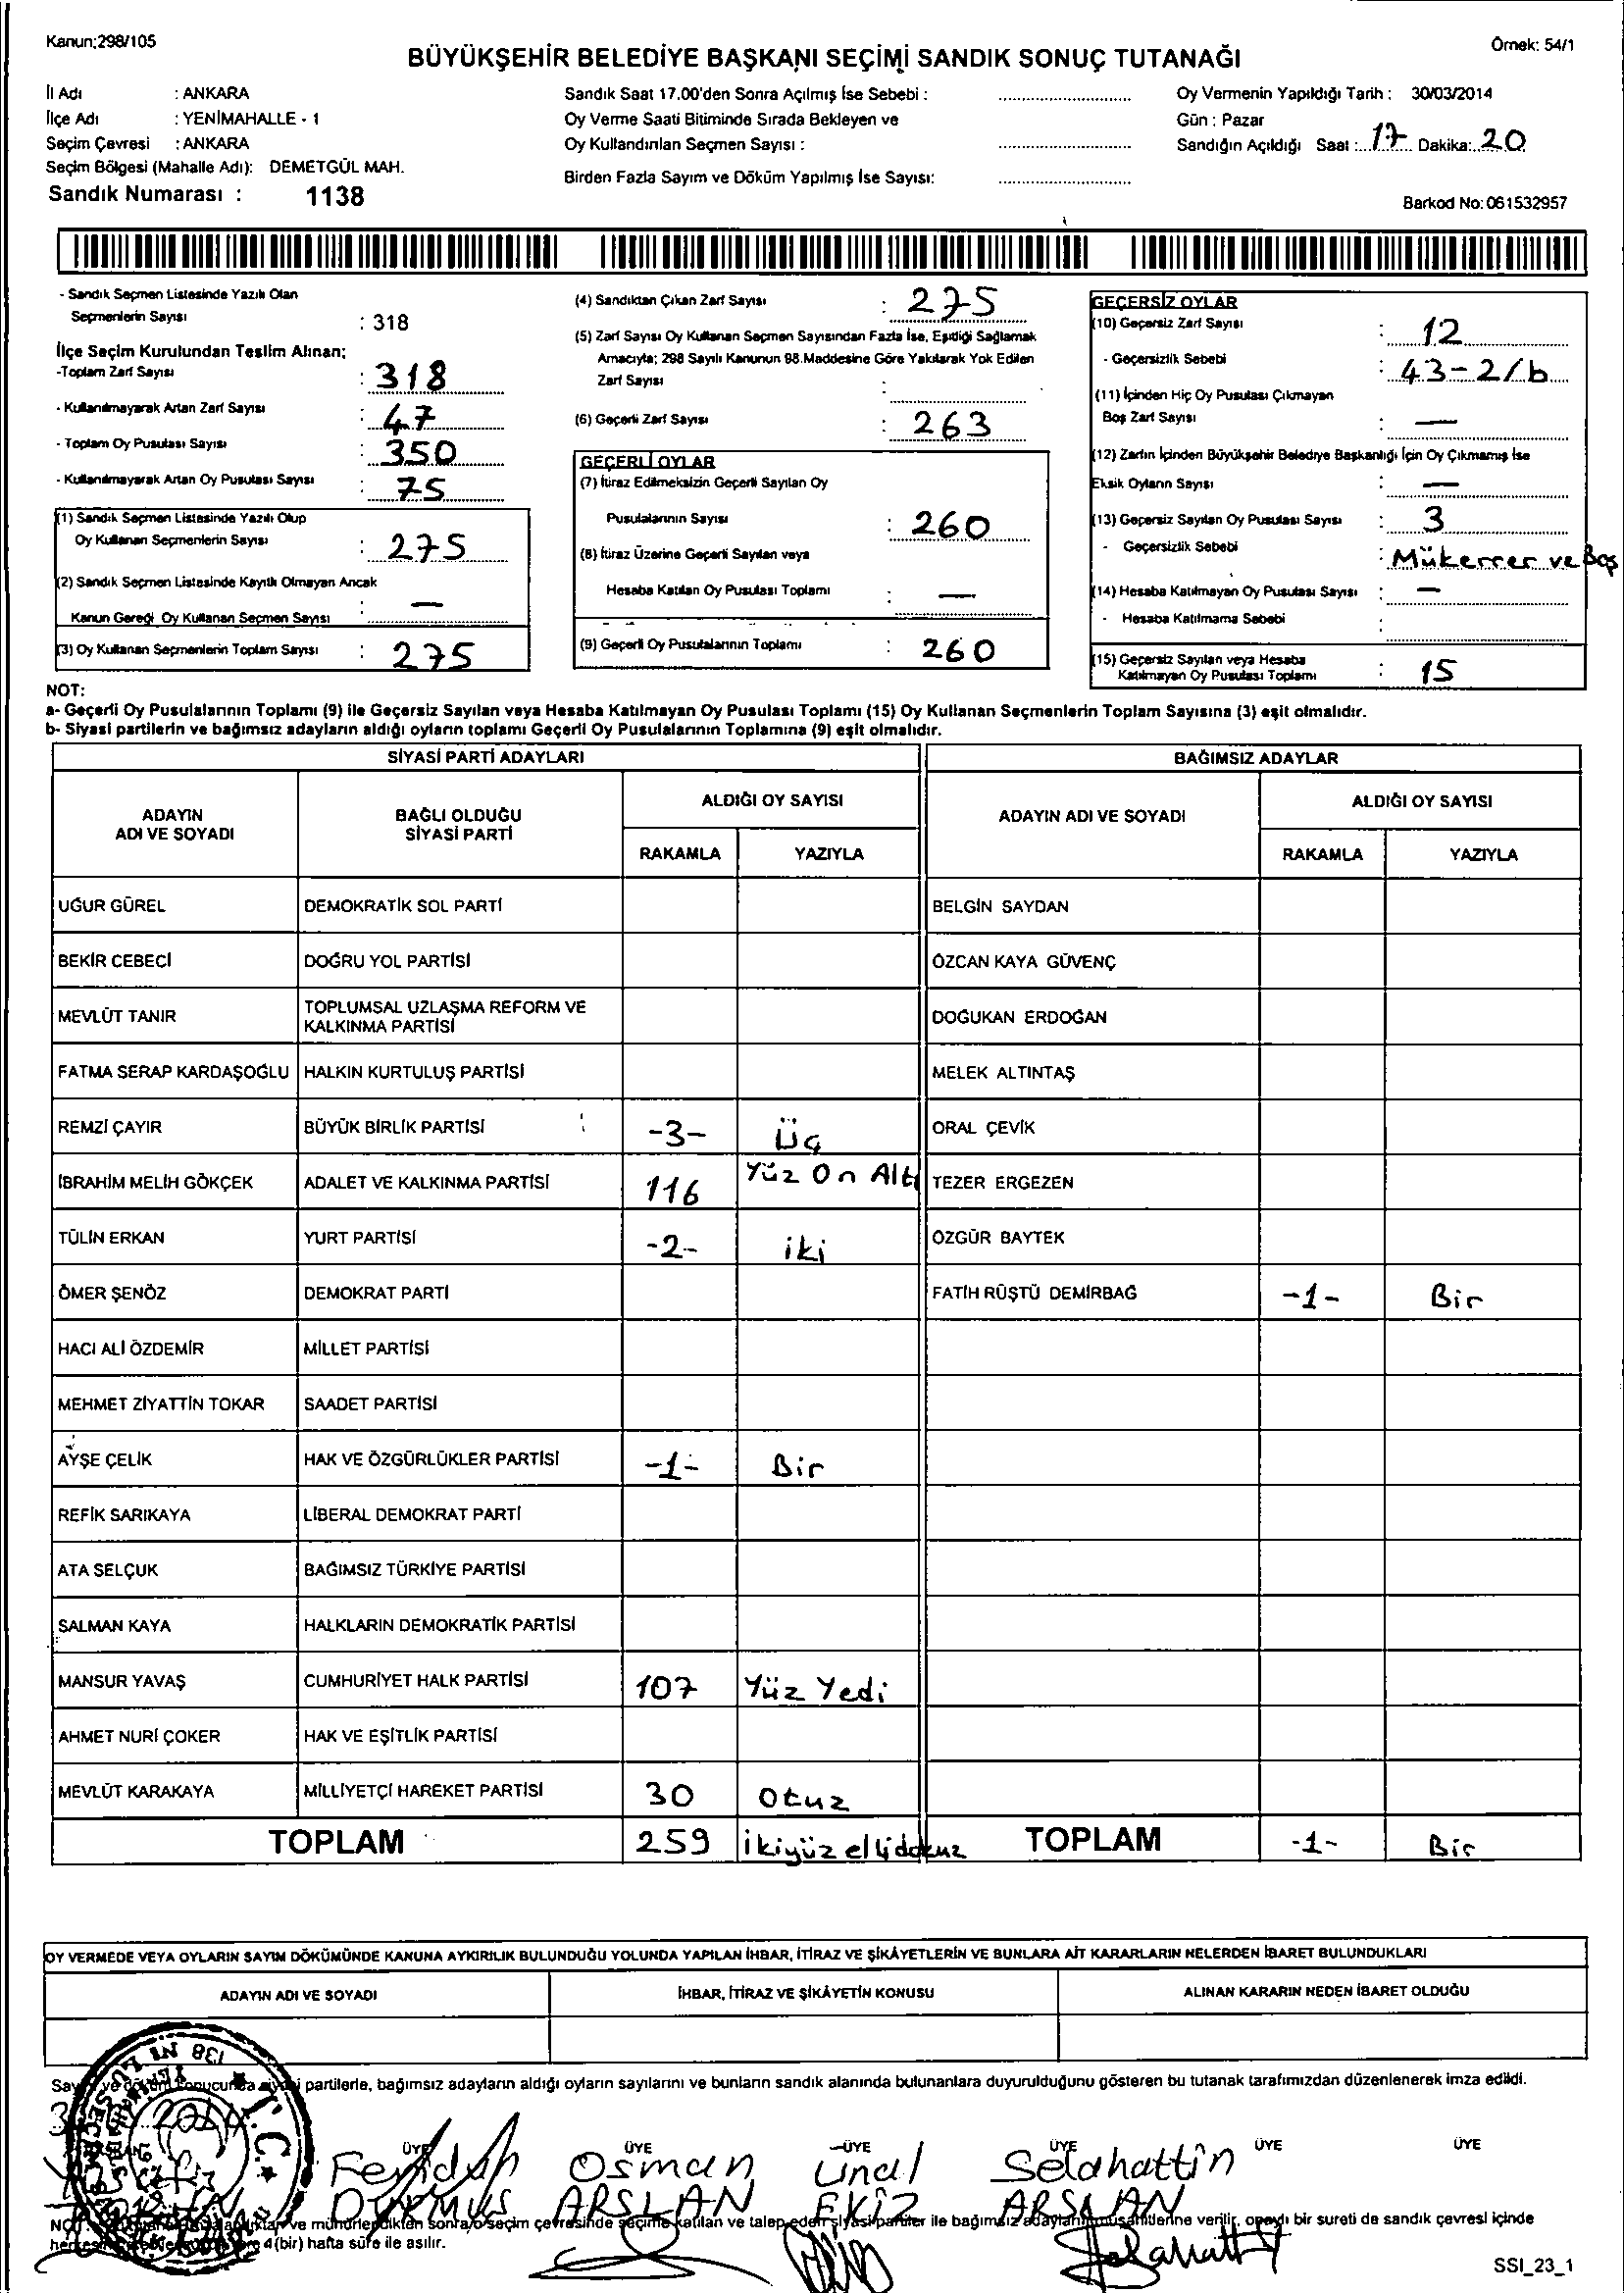 Kanun;298/105
Örnek: 54/1
BÜYÜKŞEHİR BELEDİYE BAŞKANI SEÇİMİ SANDIK SONUÇ TUTANAĞI
İl Adı : ANKARA
İlçe Adı : YENİMAHALLE - 1
Seçim Çevresi : ANKARA
Seçim Bölgesi (Mahalle Adı): DEMETGÜL MAH.
Sandık Numarası : 1138
Sandık Saat 17.00'den Sonra Açılmış İse Sebebi :
Oy Verme Saati Bitiminde Sırada Bekleyen ve
Oy Kullandırılan Seçmen Sayısı :
Birden Fazla Sayım ve Döküm Yapılmış İse Sayısı:
Oy Vermenin Yapıldığı Tarih : 30/03/2014
Gün : Pazar
Sandığın Açıldığı Saat : 17 Dakika: 20
Barkod No: 061532957
- Sandık Seçmen Listesinde Yazılı Olan
Seçmenlerin Sayısı : 318
İlçe Seçim Kurulundan Teslim Alınan;
-Toplam Zarf Sayısı : 318
- Kullanılmayarak Artan Zarf Sayısı : 47
- Toplam Oy Pusulası Sayısı : 350
- Kullanılmayarak Artan Oy Pusulası Sayısı : 75
(1) Sandık Seçmen Listesinde Yazılı Olup
Oy Kullanan Seçmenlerin Sayısı : 275
(2) Sandık Seçmen Listesinde Kayıtlı Olmayan Ancak
Kanun Gereği Oy Kullanan Seçmen Sayısı : —
(3) Oy Kullanan Seçmenlerin Toplam Sayısı : 275
(4) Sandıktan Çıkan Zarf Sayısı : 275
(5) Zarf Sayısı Oy Kullanan Seçmen Sayısından Fazla İse, Eşitliği Sağlamak
Amacıyla; 298 Sayılı Kanunun 98.Maddesine Göre Yakılarak Yok Edilen
Zarf Sayısı :
(6) Geçerli Zarf Sayısı : 263
GEÇERLİ OYLAR
(7) İtiraz Edilmeksizin Geçerli Sayılan Oy
Pusulalarının Sayısı : 260
(8) İtiraz Üzerine Geçerli Sayılan veya
Hesaba Katılan Oy Pusulası Toplamı : —
(9) Geçerli Oy Pusulalarının Toplamı : 260
GEÇERSİZ OYLAR
(10) Geçersiz Zarf Sayısı : 12
- Geçersizlik Sebebi : 43-2/b
(11) İçinden Hiç Oy Pusulası Çıkmayan
Boş Zarf Sayısı : —
(12) Zarfın İçinden Büyükşehir Belediye Başkanlığı İçin Oy Çıkmamış İse
Eksik Oyların Sayısı : —
(13) Geçersiz Sayılan Oy Pusulası Sayısı : 3
- Geçersizlik Sebebi : Mükerrer ve Boş
(14) Hesaba Katılmayan Oy Pusulası Sayısı : —
- Hesaba Katılmama Sebebi :
(15) Geçersiz Sayılan veya Hesaba
Katılmayan Oy Pusulası Toplamı : 15
NOT:
a- Geçerli Oy Pusulalarının Toplamı (9) ile Geçersiz Sayılan veya Hesaba Katılmayan Oy Pusulası Toplamı (15) Oy Kullanan Seçmenlerin Toplam Sayısına (3) eşit olmalıdır.
b- Siyasi partilerin ve bağımsız adayların aldığı oyların toplamı Geçerli Oy Pusulalarının Toplamına (9) eşit olmalıdır.
SİYASİ PARTİ ADAYLARI BAĞIMSIZ ADAYLAR
ADAYIN ADI VE SOYADI BAĞLI OLDUĞU SİYASİ PARTİ ALDIĞI OY SAYISI ADAYIN ADI VE SOYADI ALDIĞI OY SAYISI
RAKAMLA YAZIYLA RAKAMLA YAZIYLA
UĞUR GÜREL DEMOKRATİK SOL PARTİ BELGİN SAYDAN
BEKİR CEBECİ DOĞRU YOL PARTİSİ ÖZCAN KAYA GÜVENÇ
MEVLÜT TANIR TOPLUMSAL UZLAŞMA REFORM VE KALKINMA PARTİSİ DOĞUKAN ERDOĞAN
FATMA SERAP KARDAŞOĞLU HALKIN KURTULUŞ PARTİSİ MELEK ALTINTAŞ
REMZİ ÇAYIR BÜYÜK BİRLİK PARTİSİ -3- Üç ORAL ÇEVİK
İBRAHİM MELİH GÖKÇEK ADALET VE KALKINMA PARTİSİ 116 Yüz On Altı TEZER ERGEZEN
TÜLİN ERKAN YURT PARTİSİ -2- iki ÖZGÜR BAYTEK
ÖMER ŞENÖZ DEMOKRAT PARTİ FATİH RÜŞTÜ DEMİRBAĞ -1- Bir
HACI ALİ ÖZDEMİR MİLLET PARTİSİ
MEHMET ZİYATTİN TOKAR SAADET PARTİSİ
AYŞE ÇELİK HAK VE ÖZGÜRLÜKLER PARTİSİ -1- Bir
REFİK SARIKAYA LİBERAL DEMOKRAT PARTİ
ATA SELÇUK BAĞIMSIZ TÜRKİYE PARTİSİ
SALMAN KAYA HALKLARIN DEMOKRATİK PARTİSİ
MANSUR YAVAŞ CUMHURİYET HALK PARTİSİ 107 Yüz Yedi
AHMET NURİ ÇOKER HAK VE EŞİTLİK PARTİSİ
MEVLÜT KARAKAYA MİLLİYETÇİ HAREKET PARTİSİ 30 Otuz
TOPLAM 259 ikiyüz ellidokuz TOPLAM -1- Bir
OY VERMEDE VEYA OYLARIN SAYIM DÖKÜMÜNDE KANUNA AYKIRILIK BULUNDUĞU YOLUNDA YAPILAN İHBAR, İTİRAZ VE ŞİKÂYETLERİN VE BUNLARA AİT KARARLARIN NELERDEN İBARET BULUNDUKLARI
ADAYIN ADI VE SOYADI İHBAR, İTİRAZ VE ŞİKÂYETİN KONUSU ALINAN KARARIN NEDEN İBARET OLDUĞU
partilerle, bağımsız adayların aldığı oyların sayılarını ve bunların sandık alanında bulunanlara duyurulduğunu gösteren bu tutanak tarafımızdan düzenlenerek imza edildi.
ÜYE ÜYE ÜYE ÜYE ÜYE ÜYE
Feridun Osman Ünal Selahattin
DURMUŞ ARSLAN EKİZ ARSLAN
ve mühürlendikten sonra o seçim çevresinde seçime katılan ve talep eden siyasi partiler ile bağımsız adayların müşahitlerine verilir, onaylı bir sureti de sandık çevresi içinde
(bir) hafta süre ile asılır.
T.C.
SSI_23_1